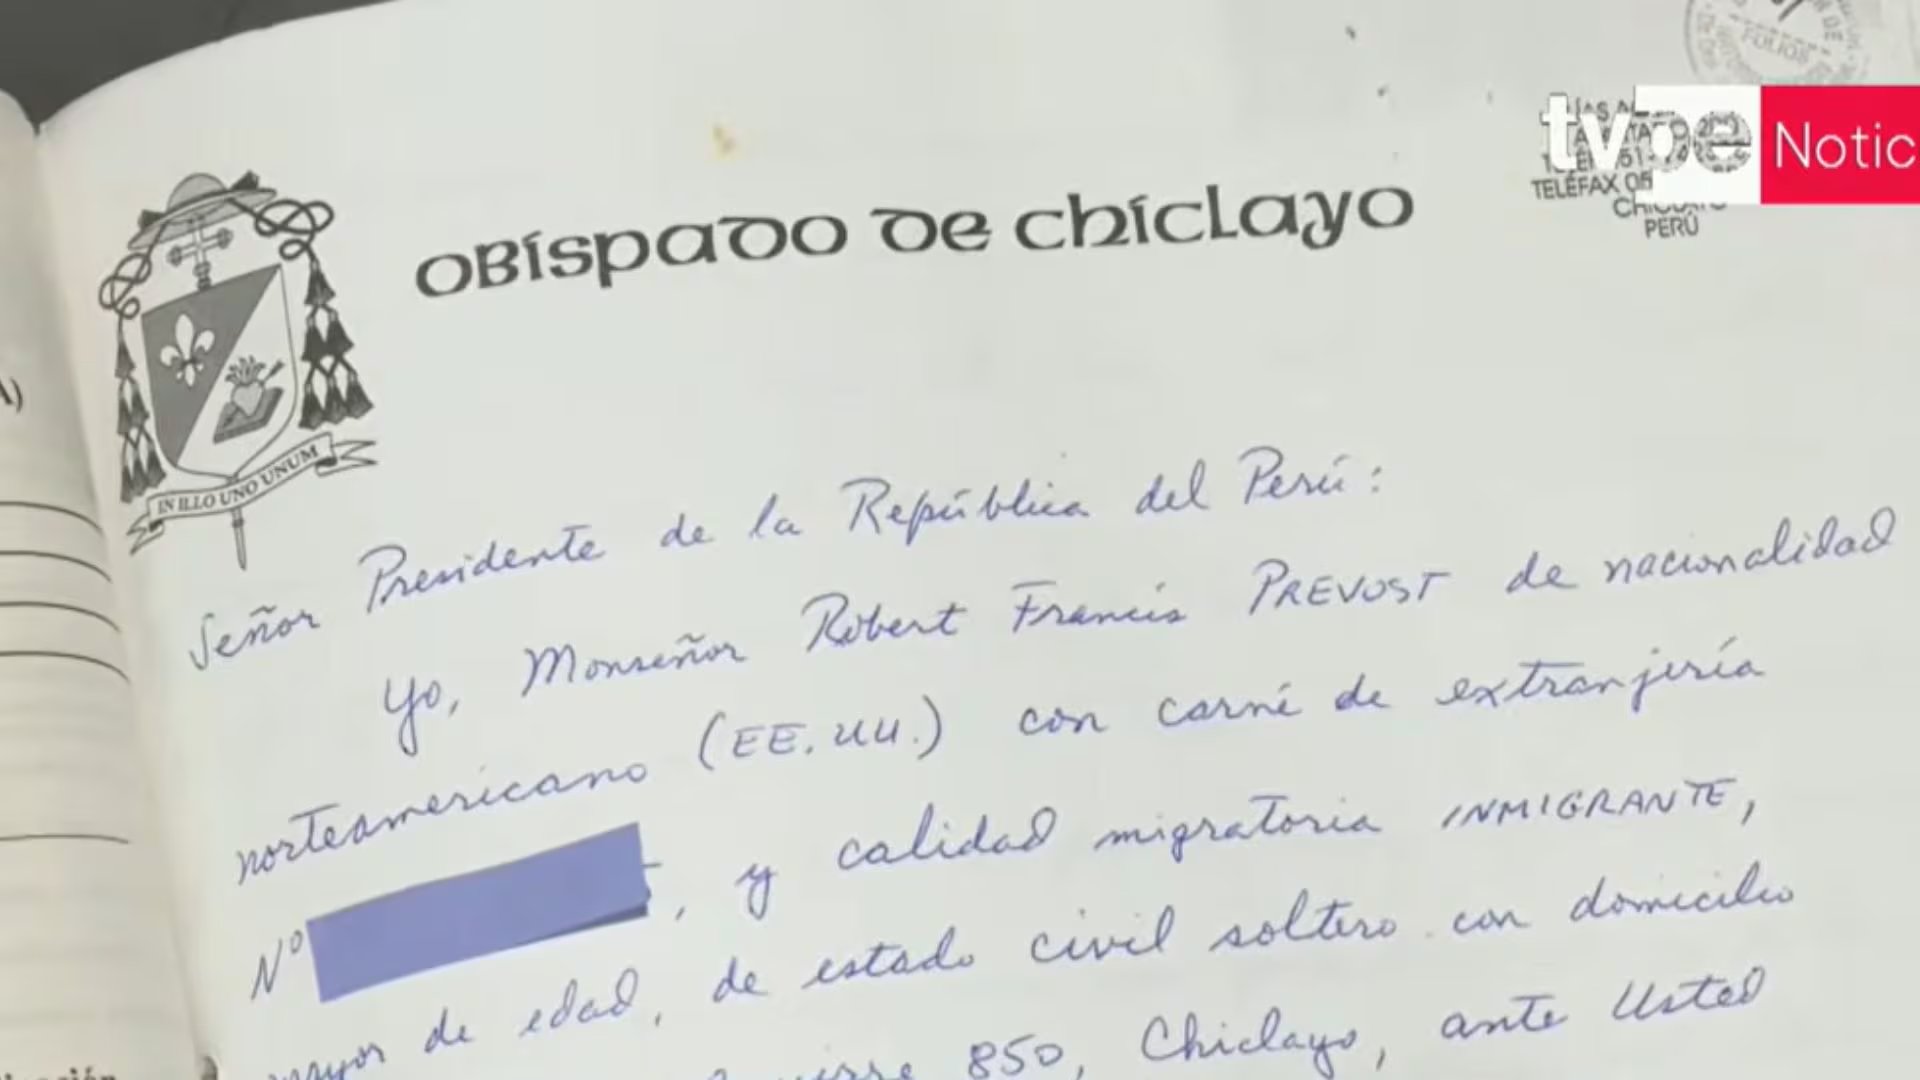 FOLIOS
tvpe Notic
TELÉFAX
PERÚ
OBISPADO DE CHICLAYO
IN ILLO UNO UNUM
Señor Presidente de la República del Perú:
Yo, Monseñor Robert Francis PREVOST de nacionalidad
norteamericano (EE.UU.) con carné de extranjería
Nº , y calidad migratoria INMIGRANTE,
mayor de edad, de estado civil soltero con domicilio
850, Chiclayo, ante Usted